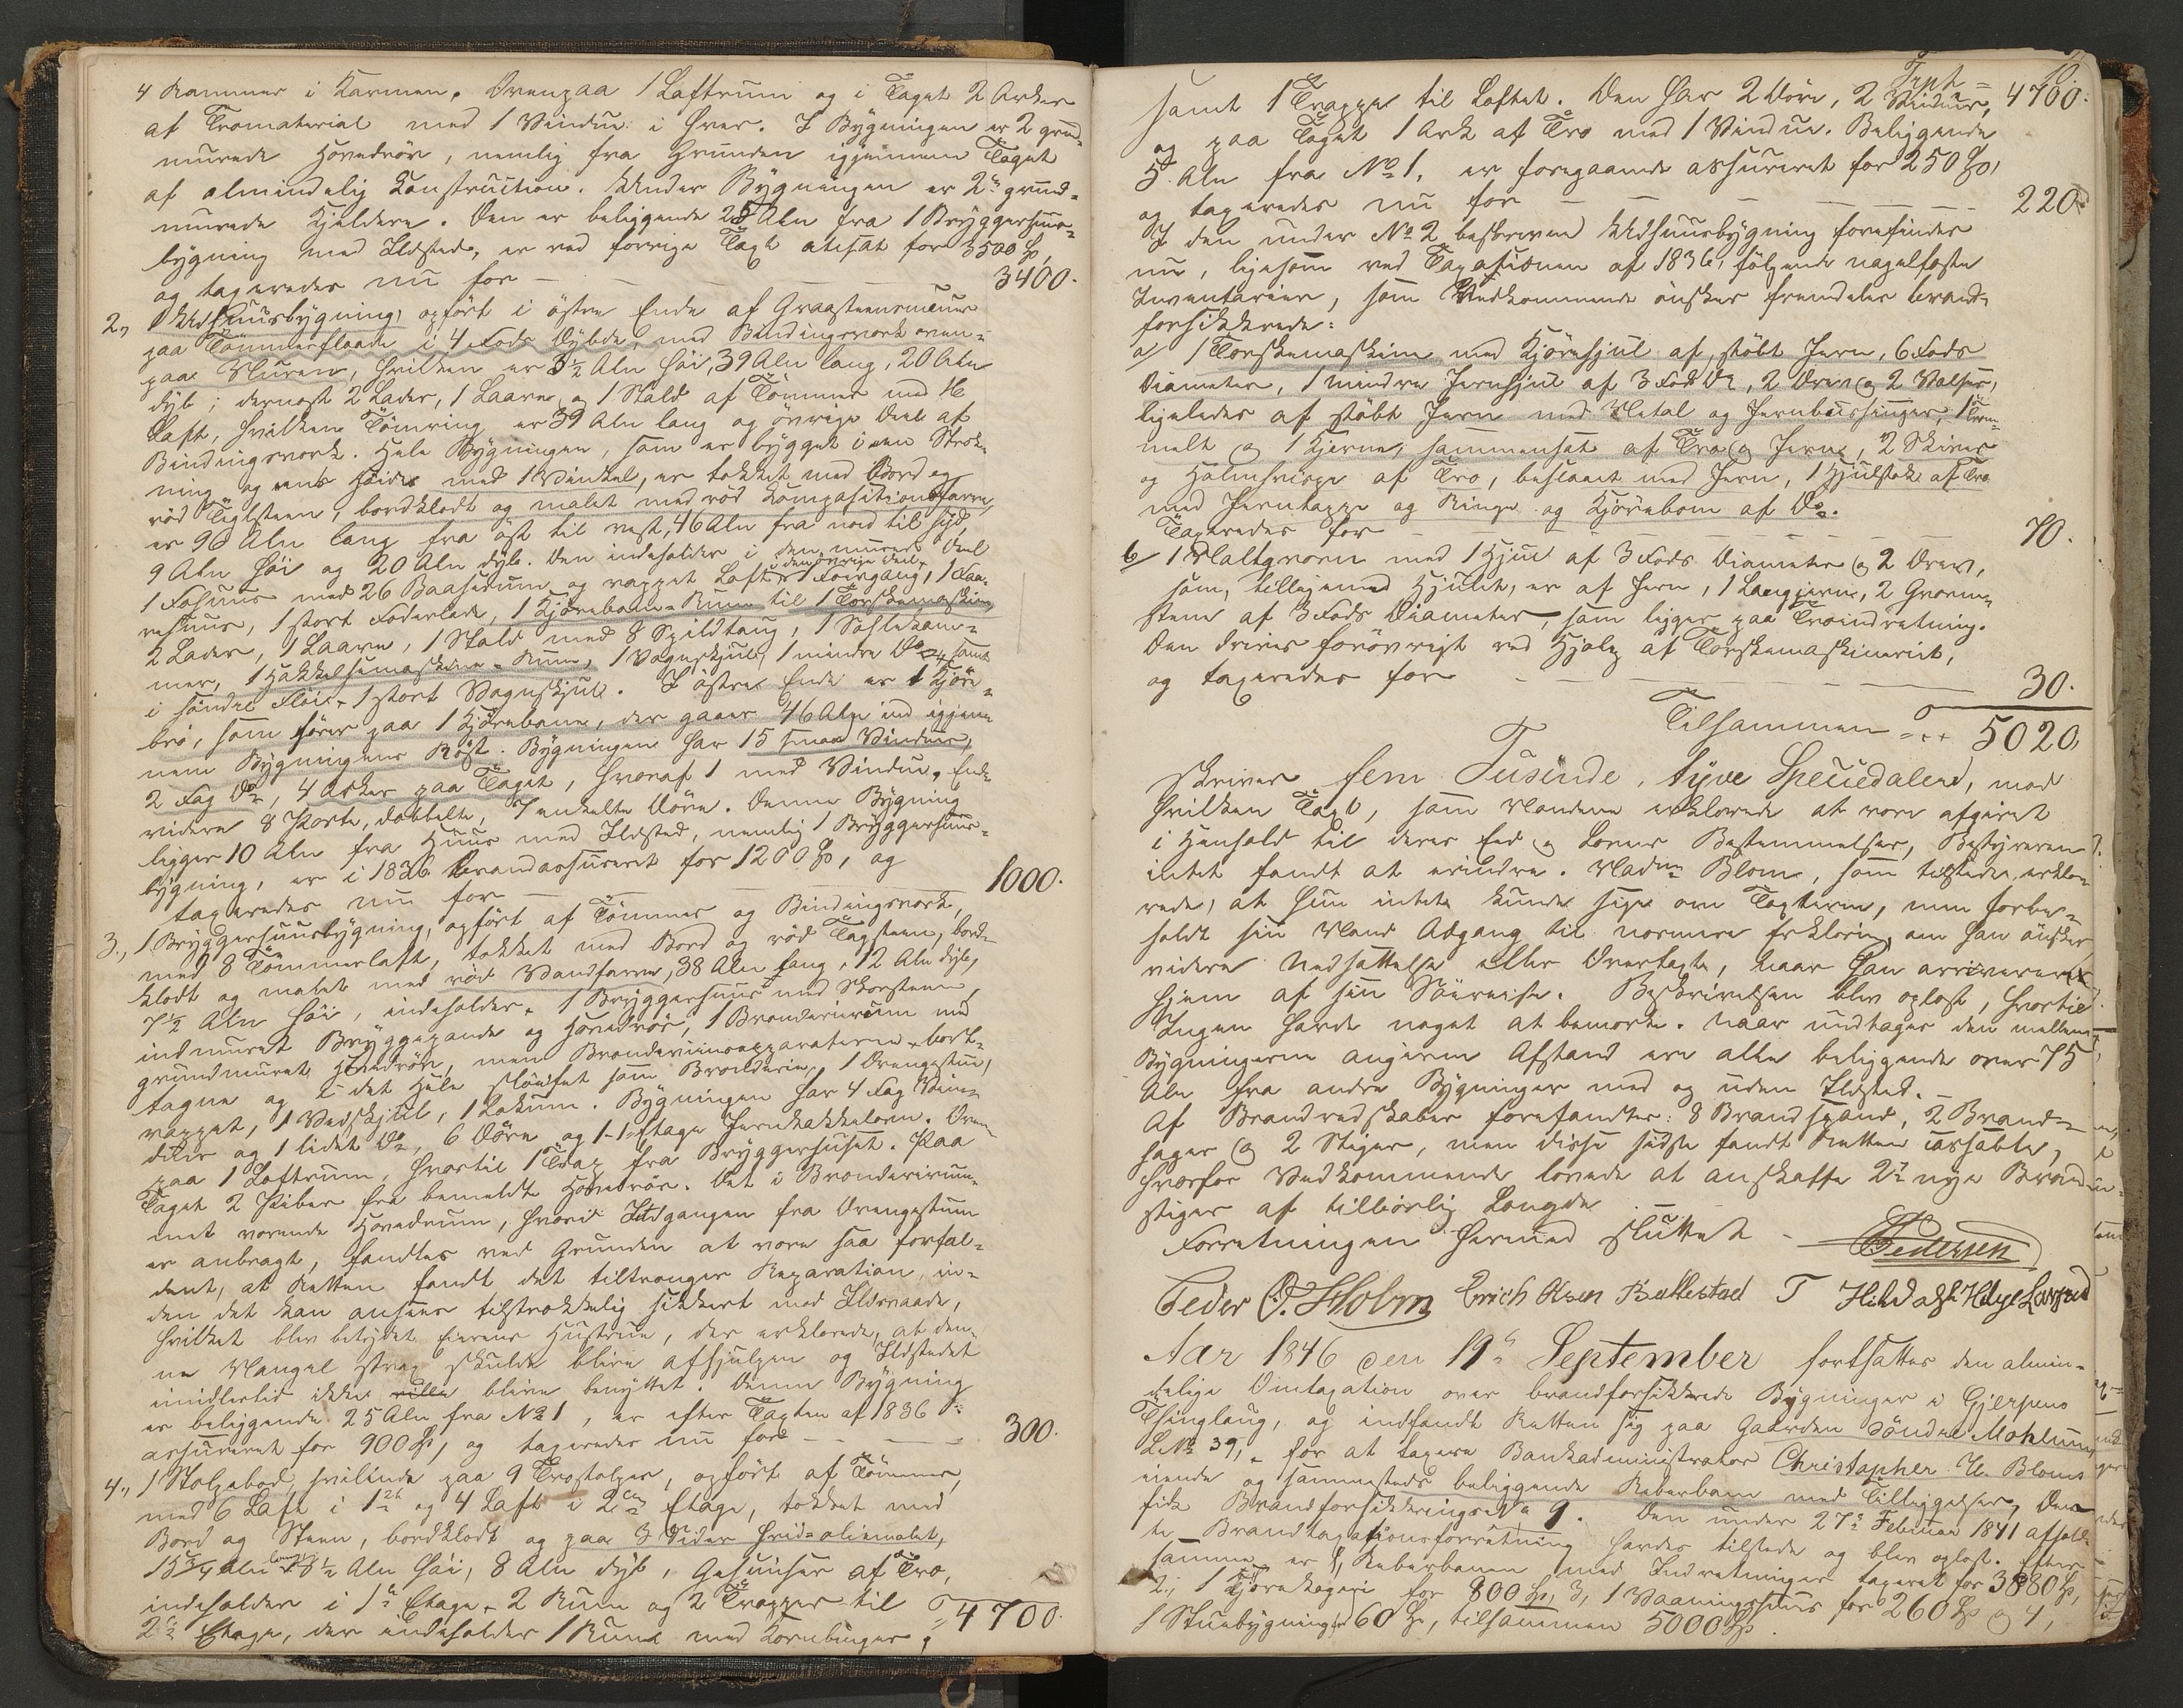 4 Kammer i Karmen. Ovenpaa 1 Loftrum og i Taget 2 Arker
af Træmaterial med 1 Vindue i hver. I Bygningen er 2 grund-
murede Hovedrör, nemlig fra Grunden igjennem Taget
af almindelig Construction. Under Bygningen er 2de grund-
murede Kjeldere. Den er beliggende 25 Alen fra 1 Bryggerhuus-
bygning med Ildsted, er ved forrige Taxt ansat for 3500 Sp,
og taxeredes nu for — — — 3400.
2., 1 Udhuusbygning, opfört i östre Ende af Graasteensmuur
paa Tömmerflaade i 4 Fods Dybde, med Bindingsverk oven-
paa Muren, hvilken er 3½ Alen höi, 39 Alen lang, 20 Alen
dyb; dernæst 2 Lader, 1 Laave og 1 Stald af Tömmer med 16
Laft, hvilken Tömring er 39 Alen lang og övrige Deel af
Bindingsverk. Hele Bygningen, som er bygget i een Stræk-
ning og eens Höide med 1 Vinkel, er tækket med Bord og
röd Teglsteen, bordklædt og malet med röd Compositionsfarve,
er 90 Alen lang fra öst til vest, 46 Alen fra nord til syd,
9 Alen höi og 20 Alen dyb. Den indeholder i den murede Deel
1 Fæhuus med 26 Baaserum og rappet Loft, i den övrige Deel 1 Foergang, 1 Faa-
rehuus, 1 stort Foderlade, 1 Kjörebane-Rum til 1 Tærskemaskine,
2 Lader, 1 Laave, 1 Stald med 8 Spildtoug, 1 Sælekam-
mer, 1 Hakkelsemaskine-Rum, 1 Vognskjul, 1 mindre Do, samt
i söndre Flöi 1 stort Vognskjul. I östre Ende er 1 Kjöre-
bro, som förer paa 1 Kjörebane, der gaaer 46 Alen ind igjen-
nem Bygningens Röst. Bygningen har 15 smaa Vinduer,
2 Fag Do, 4 Arker paa Taget, hvoraf 1 med Vindue. End-
videre 8 Porte, dobbelte, 7 enkelte Döre. Denne Bygning
ligger 10 Alen fra Huus med Ildsted, nemlig 1 Bryggerhuus-
bygning, er i 1836 brandassureret for 1200 Sp, og
taxeredes nu for — — — 1000.
3., 1 Bryggerhuusbygning, opfört af Tömmer og Bindingsverk,
med 8 Tömmerlaft, tækket med Bord og röd Tagsteen, bord-
klædt og malet med röd Vandfarve, 38 Alen lang, 12 Alen dyb,
7½ Alen höi, indeholder: 1 Bryggerhuus med Skorsteen,
indmuret Bryggepande og Hovedrör, 1 Brænderierum med
grundmuret Hovedrör, men Brænderieapparaterne bort-
tagne og i det Hele slöifet som Brænderie, 1 Drengestue,
rappet, 1 Vedskjul, 1 Lokum. Bygningen har 4 Fag Vin-
duer og 1 lidet Do, 6 Döre og 1-1 Etages Jernkakkelovn. Oven-
paa 1 Loftrum, hvortil 1 Trap fra Bryggerhuset. Paa
Taget 2 Piber fra bemeldte Hovedrör. Det i Brænderirum-
met værende Hovedrum, hvori Ildgangen fra Drengestuen
er anbragt, fandtes ved Grunden at være saa forfal-
dent, at Retten fandt det tiltrænger Reparation in-
den det kan ansees tilstrækkelig sikkert mod Ildsvaade,
hvilket blev betydet Eierens Hustrue, der erklærede, at den-
ne Mangel strax skulde blive afhjulpen og Ildstedet
imidlertid ikke ville blive benyttet. Denne Bygning
er beliggende 25 Alen fra No 1, er efter Taxten af 1836
assureret for 900 Sp, og taxeredes nu for — — 300.
4., 1 Stolpebod, hvilende paa 9 Træstolper, opfört af Tömmer,
med 6 Laft i 1ste og 4 Laft i 2den Etage, tækket med
Bord og Steen, bordklædt og paa 3 Sider hvid-oliemalet,
15¾ Alen lang, 8½ Alen höi, 8 Alen dyb, Gesimser af Træ,
indeholder i 1ste Etage 2 Rum og 2 Trapper til
2den Etage, der indeholder 1 Rum med Kornbinger; 4700
10.
Trpt = 4700.
samt 1 Trappe til Loftet. Den har 2 Döre, 2 Vinduer,
og paa Taget 1 Ark af Træ med 1 Vindue. Beliggende
5 Alen fra No 1, er foregaaende assureret for 250 Sp,
og taxeredes nu for — — — 220.
I den under No 2 beskrevne Udhuusbygning forefindes
nu, ligesom ved Taxationen af 1836, fölgende nagelfaste
Inventarier, som Vedkommende önsker fremdeles brand-
forsikkrede:
a/ 1 Tærskemaskine med Kjörehjul af stöbt Jern, 6 Fods
Diameter, 1 mindre Jernhjul af 3 Fods Do, 2 Drev og 2 Valser,
ligeledes af stöbt Jern med Metal og Jernbössinger, 1 Trom-
melt og 1 Kjerne, sammensat af Træ og Jern, 2 Skiver
og Halmhvisper af Træ, beslaaet med Jern, 1 Hjulstok af Træ
med Jerntapper og Ringe og Kjörebom af Do.
Taxeredes for — — — 70.
b/ 1 Maltqværn med 1 Hjul af 3 Fods Diameter og 2 Drev,
som, tilligemed Hjulet, er af Jern, 1 Langjern, 2 Qværn-
stene af 3 Fods Diameter, som ligger paa Træindretning.
Den drives forövrigt ved Hjelp af Tærskemaskineriet,
og taxeredes for — — — 30.
Tilsammen = . . 5020,
skriver fem Tusinde, tyve Speciedaler, mod
hvilken Taxt, som Mændene erklærede at være afgivet
i Henhold til deres Eed og Lovens Bestemmelser, Bestyreren
intet fandt at erindre. Madme Blom, som tilstede, erklæ-
rede, at hun intet kunde sige om Taxterne, men forbe-
holdt sin Mand Adgang til nærmere Erklæring, om han önsker
videre Nedsættelse eller Overtaxt, naar han arriverer
hjem af sin Söereise. Beskrivelsen blev oplæst, hvortil
Ingen havde noget at bemærke. Naar undtages den mellem
Bygningerne angivne Afstand ere alle beliggende over 75
Alen fra andre Bygninger med og uden Ildsted.—
Af Brandredskaber forefandtes: 8 Brandspand, 2 Brand-
hager og 2 Stiger, men disse sidste fandt Retten,
hvorfor Vedkommende lovede at anskaffe 2de nye Brand-
stiger af tilbörlig Længde.
Forretningen hermed sluttet — Pedersen
Peder P. Holm Erich Olsen Ballestad
Aar 1846 den 19de September fortsattes den almin-
delige Omtaxation over brandforsikkrede Bygninger i Gjerpens
Thinglaug, og indfandt Retten sig paa Gaarden Söndre Mohlum
L No 39, for at taxere Bankadministrator Christopher U. Bloms
eiende og sammesteds beliggende Reberbane med Tilliggelser,
Brandforsikkrings No 9. Den under 27de Februar 1841 afhold-
te Brandtaxationsforretning havdes tilstede og blev oplæst. Efter
samme er 1, Reberbanen med Indretninger taxeret for 3880 Sp,
2., 1 Tjærekogeri for 800 Sp, 3, 1 Vaaningshuus for 260 Sp og 4,
1 Stuebygning 60 Sp, tilsammen 5000 Sp.